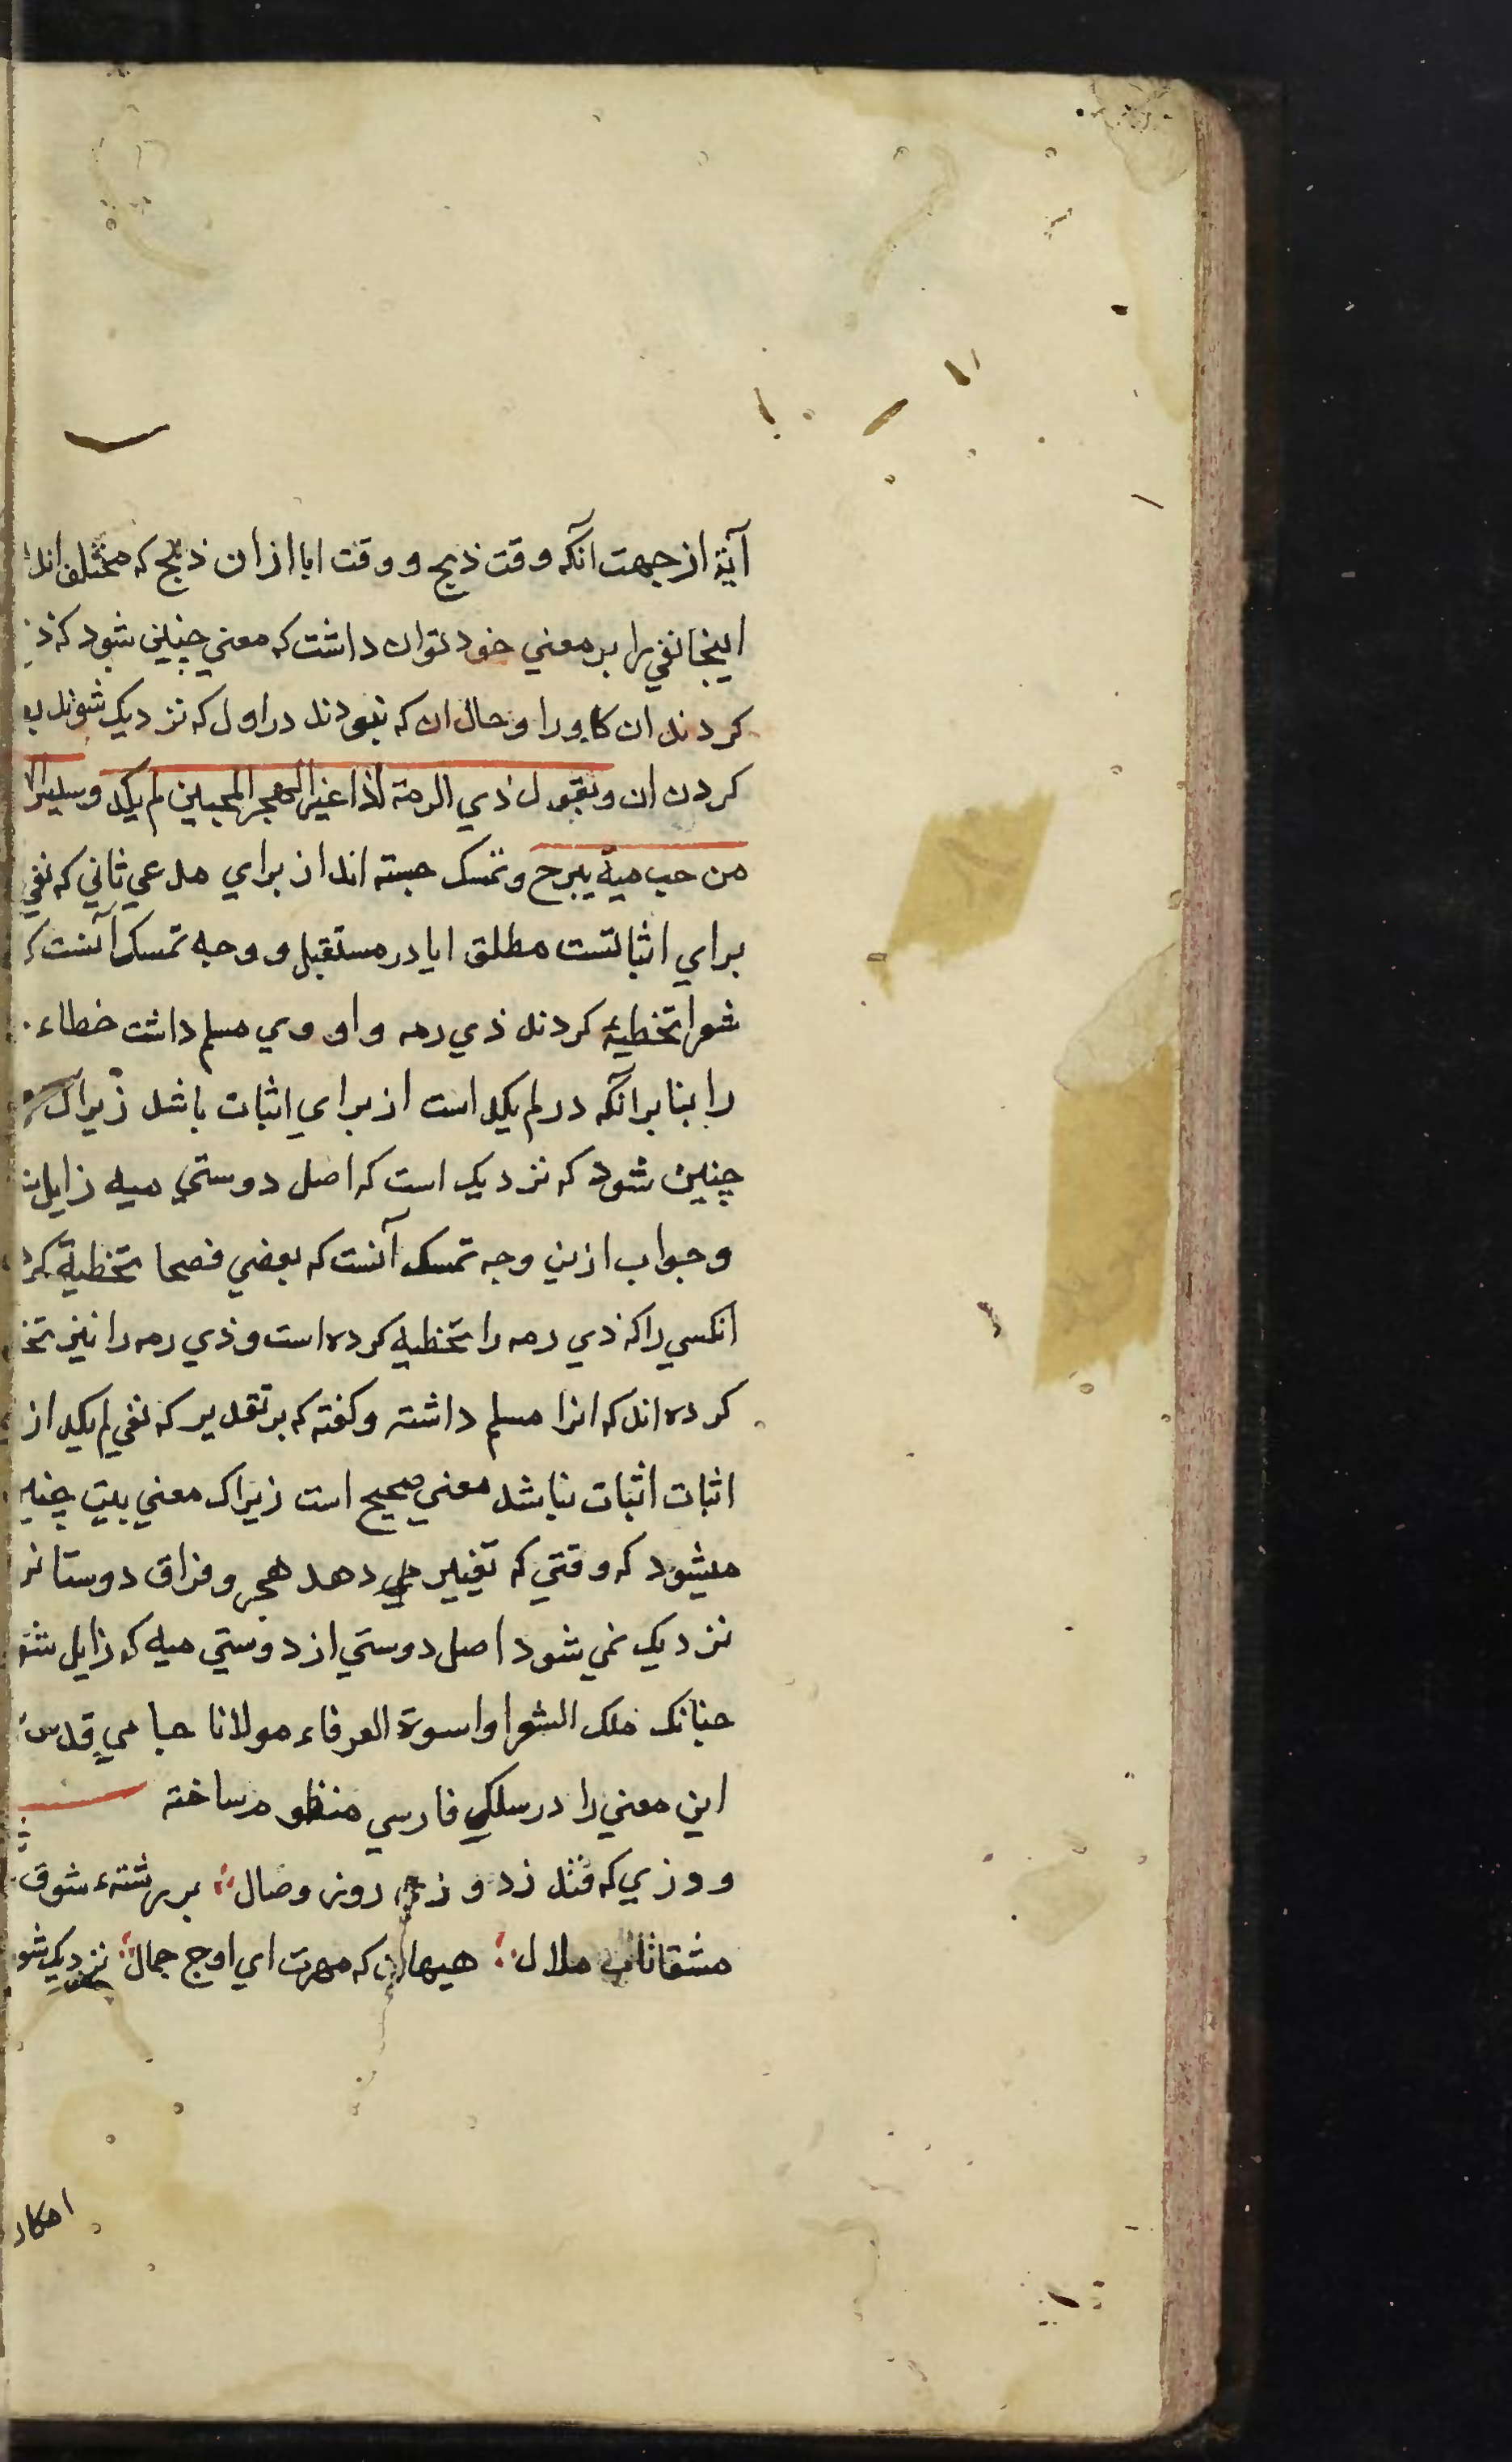 آية از جهت آنکه وقت ذبح و وقت ابا ازان ذبح که مختلف اند
اینجا نفی را بر معنی خود توان داشت که معنی چنین شود که
کردند ان کاو را و حال ان که نبودند در اول که نزدیک شوند
کردن ان و بقول ذي الرمة اذا غير الهجر المحبين لم يكد رسيس
من حب مية يبرح و تمسک جسته اند از برای مدعی ثانی که نفی
برای اثباتست مطلق ایا در مستقبل و وجه تمسک آنست که
شعرا تخطیه کردند ذی رمه و او وی مسلم داشت خطاء
را بنا بر آنکه در لم یکد است از برای اثبات باشد زیراک
چنین شود که نزدیک است که اصل دوستی میه زایل
و جواب ازین وجه تمسک آنست که بعضی فصحا تخطیة
انکسی را که ذی رمه را تخطیه کرده است و ذی رمه را نیز
کرده اند که انرا مسلم داشته و کفته که بر تقدیر که نفی لم یکد از
اثبات اثبات نباشد معنی صحیح است زیراک معنی بیت چنین
میشود که وقتی که تغییر می دهد هجر و فراق دوستانر
نزدیک نمی شود اصل دوستی از دوستی میه که زایل شو
چنانک ملک الشعرا و اسوة العرفاء مولانا جامی قدس
این معنی را در سلکی فارسی منظوم ساخته
که فتد زد و روز وصال بر رشتهء شوق
مشقانان ملال هیهات که مهرت ای اوج جمال نزدیک شو